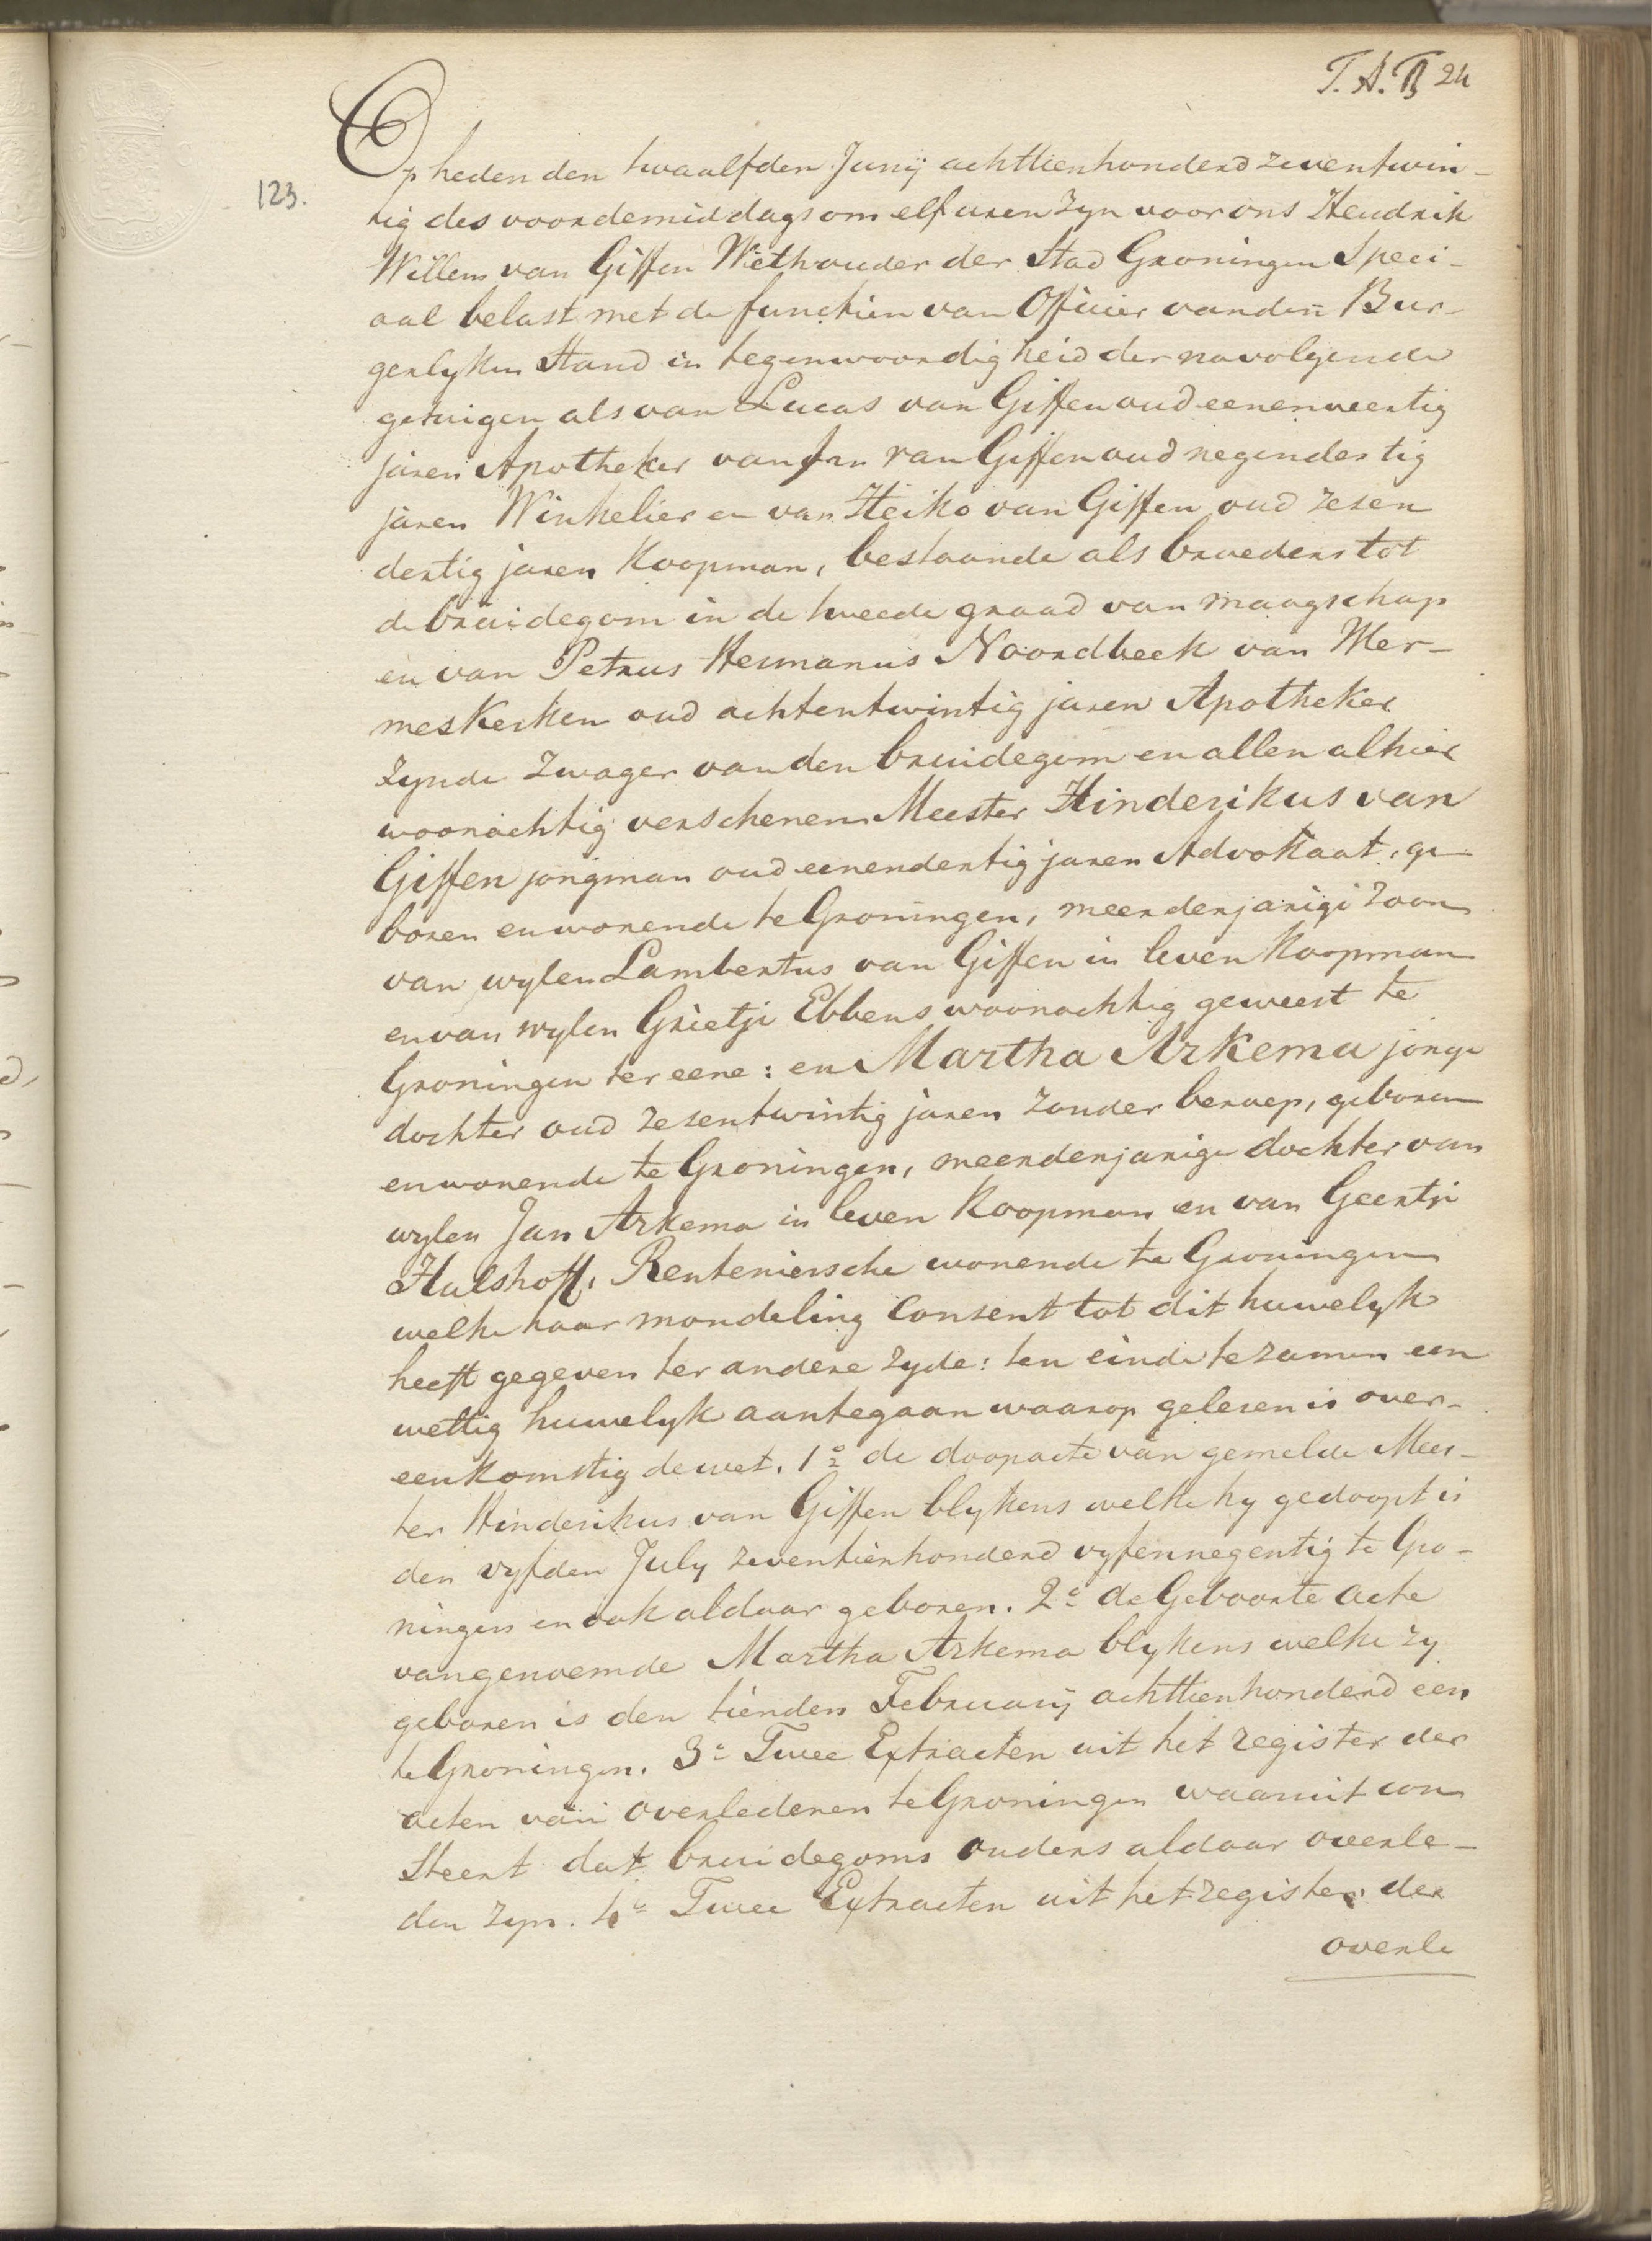 T. A. B 24
123.
Op heden den twaalfden Junij achttienhonderd zeventwin-
tig des voordemiddags om elf uren zyn voor ons Hendrik
Willem van Giffen Wethouder der Stad Groningen Speci-
aal belast met de functien van Officier van den Bur-
gerlyken Stand in tegenwoordigheid der navolgende
getuigen als van Lucas van Giffen oud eenenveertig
jaren Apotheker van Jan van Giffen oud negendertig
jaren Winkelier en van Heiko van Giffen oud zesen
dertig jaren Koopman, bestaande als broeders tot
de bruidegom in de tweede graad van maagschap
en van Petrus Hermanus Noordbeek van Mer-
meskerken oud achtentwintig jaren Apotheker
zynde zwager van den bruidegom en allen alhier
woonachtig verschenen Meester Hinderikus van
Giffen jongman oud eenendertig jaren Advokaat, ge
boren en wonende te Groningen, meerderjarige zoon
van wylen Lambertus van Giffen in leven Koopman
en van wylen Grietje Ebbens woonachtig geweest te
Groningen ter eene: en Martha Arkema jonge
dochter oud zesentwintig jaren zonder beroep, geboren
en wonende te Groningen, meerderjarige dochter van
wylen Jan Arkema in leven Koopman en van Geertje
Hulshoff, Renteniersche wonende te Groningen
welke haar mondeling Consent tot dit huwelyk
heeft gegeven ter andere zyde: ten einde te zamen een
wettig huwelyk aantegaan waarop gelezen is over-
eenkomstig de wet. 1o de doopacte van gemelde Mees-
ter Hinderikus van Giffen blykens welke hy gedoopt is
den vyfden July zeventienhonderd vyfennegentig te Gro-
ningen en ook aldaar geboren. 2o de Geboorte acte
van genoemde Martha Arkema blykens welke zy
geboren is den tienden February achttienhonderd een
te Groningen. 3o Twee Extracten uit het register der
acten van overledenen te Groningen waaruit con
steert dat bruidegoms ouders aldaar overle-
den zyn. 4o Twee Extracten uit het register der
overle